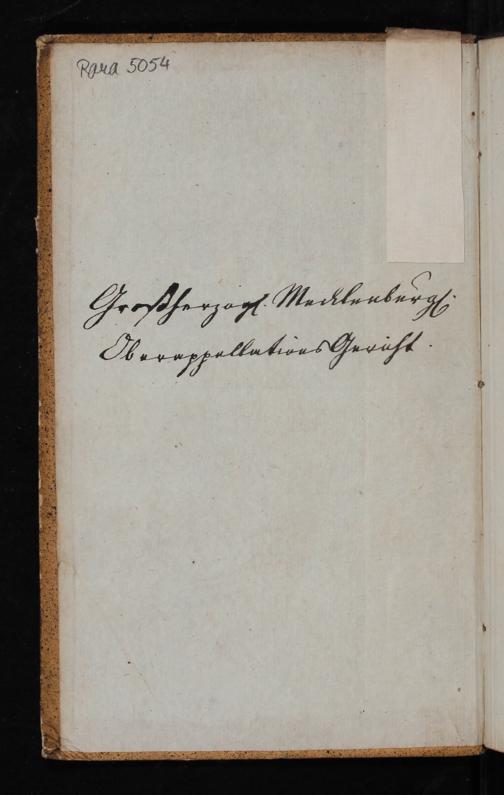 Rara 5054
Großherzogl. Mecklenburgl.
OberappellationsGericht.